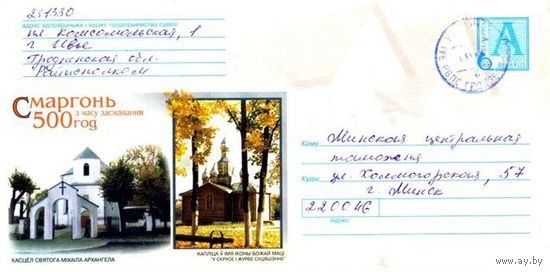 231330
адрас адпраўшчыка і індэкс прадпрыемства сувязі
пл Комсомольская, 1
г Ивье
Гродненская обл.
Райисполком
А
Смаргонь
з часу заснавання
500 год
Каму Минская центральная
таможня
Куды ул. Холмогорская, 57
г. Минск
220046
індэкс
КАСЦЁЛ СВЯТОГА МІХАІЛА АРХАНГЕЛА
КАПЛІЦА Ў ІМЯ ІКОНЫ БОЖАЙ МАЦІ
"У СКРУСЕ І ЖУРБЕ СУЦЯШЭННЕ"
AY.BY